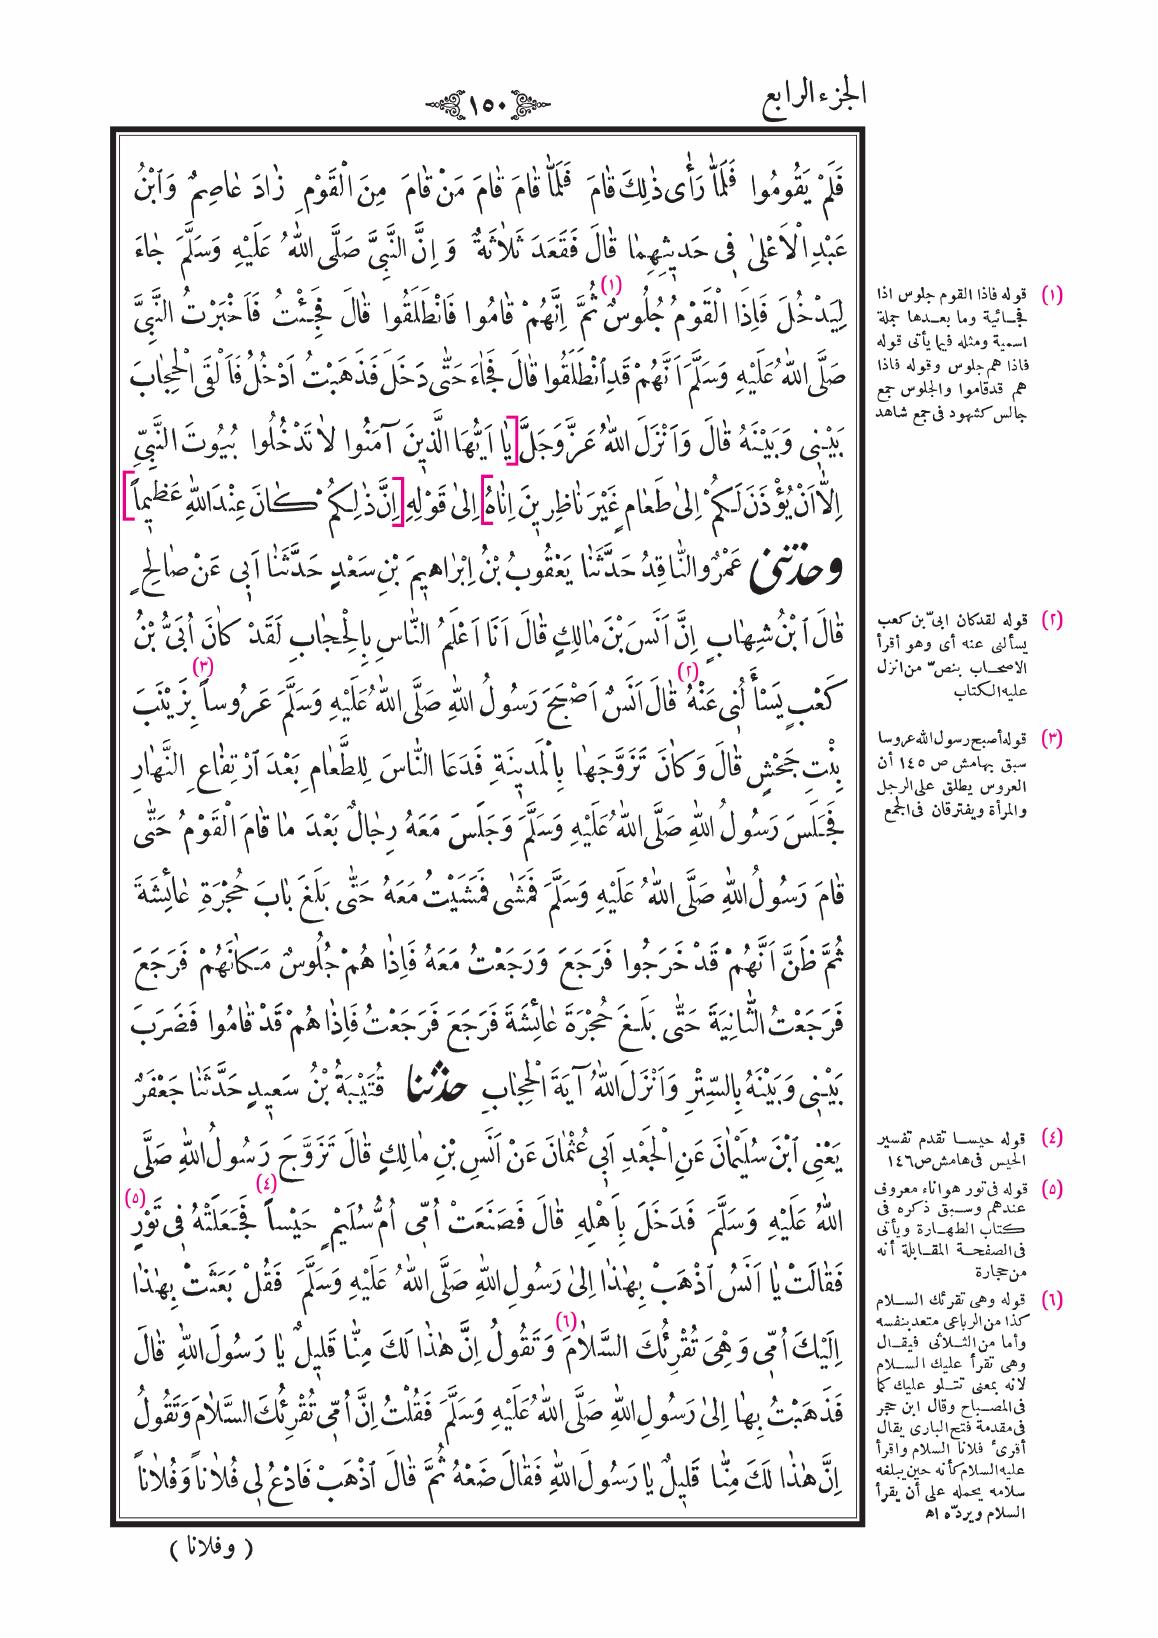 الجزء الرابع
١٥٠
فَلَمْ يَقُومُوا فَلَمَّا رَأَى ذٰلِكَ قَامَ فَلَمَّا قَامَ قَامَ مَنْ قَامَ مِنَ الْقَوْمِ زَادَ عَاصِمٌ وَابْنُ
عَبْدِ الْاَعْلىٰ فِي حَدِيثِهِمَا قَالَ فَقَعَدَ ثَلَاثَةٌ وَاِنَّ النَّبِيَّ صَلَّى اللهُ عَلَيْهِ وَسَلَّمَ جَاءَ
لِيَدْخُلَ فَاِذَا الْقَوْمُ جُلُوسٌ (١) ثُمَّ اِنَّهُمْ قَامُوا فَانْطَلَقُوا قَالَ فَجِئْتُ فَاَخْبَرْتُ النَّبِيَّ
صَلَّى اللهُ عَلَيْهِ وَسَلَّمَ اَنَّهُمْ قَدِ انْطَلَقُوا قَالَ فَجَاءَ حَتّٰى دَخَلَ فَذَهَبْتُ اَدْخُلُ فَاَلْقَى الْحِجَابَ
بَيْنِي وَبَيْنَهُ قَالَ وَاَنْزَلَ اللهُ عَزَّ وَجَلَّ [يَا اَيُّهَا الَّذِينَ آمَنُوا لَا تَدْخُلُوا بُيُوتَ النَّبِيِّ
اِلَّا اَنْ يُؤْذَنَ لَكُمْ اِلىٰ طَعَامٍ غَيْرَ نَاظِرِينَ اِنَاهُ] اِلىٰ قَوْلِهِ [اِنَّ ذٰلِكُمْ كَانَ عِنْدَ اللهِ عَظِيماً]
وحدثنى عَمْرٌو النَّاقِدُ حَدَّثَنَا يَعْقُوبُ بْنُ اِبْرَاهِيمَ بْنِ سَعْدٍ حَدَّثَنَا اَبِي عَنْ صَالِحٍ
قَالَ ابْنُ شِهَابٍ اِنَّ اَنَسَ بْنَ مَالِكٍ قَالَ اَنَا اَعْلَمُ النَّاسِ بِالْحِجَابِ لَقَدْ كَانَ اُبَيُّ بْنُ
كَعْبٍ يَسْأَلُنِي عَنْهُ (٢) قَالَ اَنَسٌ اَصْبَحَ رَسُولُ اللهِ صَلَّى اللهُ عَلَيْهِ وَسَلَّمَ عَرُوساً (٣) بِزَيْنَبَ
بِنْتِ جَحْشٍ قَالَ وَكَانَ تَزَوَّجَهَا بِالْمَدِينَةِ فَدَعَا النَّاسَ لِلطَّعَامِ بَعْدَ ارْتِفَاعِ النَّهَارِ
فَجَلَسَ رَسُولُ اللهِ صَلَّى اللهُ عَلَيْهِ وَسَلَّمَ وَجَلَسَ مَعَهُ رِجَالٌ بَعْدَ مَا قَامَ الْقَوْمُ حَتّٰى
قَامَ رَسُولُ اللهِ صَلَّى اللهُ عَلَيْهِ وَسَلَّمَ فَمَشٰى فَمَشَيْتُ مَعَهُ حَتّٰى بَلَغَ بَابَ حُجْرَةِ عَائِشَةَ
ثُمَّ ظَنَّ اَنَّهُمْ قَدْ خَرَجُوا فَرَجَعَ وَرَجَعْتُ مَعَهُ فَاِذَا هُمْ جُلُوسٌ مَكَانَهُمْ فَرَجَعَ
فَرَجَعْتُ الثَّانِيَةَ حَتّٰى بَلَغَ حُجْرَةَ عَائِشَةَ فَرَجَعَ فَرَجَعْتُ فَاِذَا هُمْ قَدْ قَامُوا فَضَرَبَ
بَيْنِي وَبَيْنَهُ بِالسِّتْرِ وَاَنْزَلَ اللهُ آيَةَ الْحِجَابِ حدثنا قُتَيْبَةُ بْنُ سَعِيدٍ حَدَّثَنَا جَعْفَرٌ
يَعْنِي ابْنَ سُلَيْمَانَ عَنِ الْجَعْدِ اَبِي عُثْمَانَ عَنْ اَنَسِ بْنِ مَالِكٍ قَالَ تَزَوَّجَ رَسُولُ اللهِ صَلَّى
اللهُ عَلَيْهِ وَسَلَّمَ فَدَخَلَ بِاَهْلِهِ قَالَ فَصَنَعَتْ اُمِّي اُمُّ سُلَيْمٍ حَيْساً (٤) فَجَعَلَتْهُ فِي تَوْرٍ (٥)
فَقَالَتْ يَا اَنَسُ اذْهَبْ بِهٰذَا اِلىٰ رَسُولِ اللهِ صَلَّى اللهُ عَلَيْهِ وَسَلَّمَ فَقُلْ بَعَثَتْ بِهٰذَا
اِلَيْكَ اُمِّي وَهِيَ تُقْرِئُكَ السَّلَامَ (٦) وَتَقُولُ اِنَّ هٰذَا لَكَ مِنَّا قَلِيلٌ يَا رَسُولَ اللهِ قَالَ
فَذَهَبْتُ بِهَا اِلىٰ رَسُولِ اللهِ صَلَّى اللهُ عَلَيْهِ وَسَلَّمَ فَقُلْتُ اِنَّ اُمِّي تُقْرِئُكَ السَّلَامَ وَتَقُولُ
اِنَّ هٰذَا لَكَ مِنَّا قَلِيلٌ يَا رَسُولَ اللهِ فَقَالَ ضَعْهُ ثُمَّ قَالَ اذْهَبْ فَادْعُ لِي فُلَاناً وَفُلَاناً
(١) قوله فاذا القوم جلوس اذا
فجائية وما بعدها جملة
اسمية ومثله فيما يأتى قوله
فاذا هم جلوس وقوله فاذا
هم قدقاموا والجلوس جمع
جالس كشهود فى جمع شاهد
(٢) قوله لقدكان ابىّ بن كعب
يسألنى عنه أى وهو أقرأ
الاصحاب بنصّ من انزل
عليه الكتاب
(٣) قوله أصبح رسول الله عروسا
سبق بهامش ص ١٤٥ أن
العروس يطلق على الرجل
والمرأة ويفترقان فى الجمع
(٤) قوله حيسا تقدم تفسير
الحيس فى هامش ص ١٤٦
(٥) قوله فى تور هو اناء معروف
عندهم وسبق ذكره فى
كتاب الطهارة ويأتى
فى الصفحة المقابلة أنه
من حجارة
(٦) قوله وهى تقرئك السلام
كذا من الرباعى متعد بنفسه
وأما من الثلاثى فيقال
وهى تقرأ عليك السلام
لانه بمعنى تتلو عليك كما
فى المصباح وقال ابن حجر
فى مقدمة فتح البارى يقال
أقرئ فلانا السلام واقرأ
عليه السلام كأنه حين يبلغه
سلامه يحمله على أن يقرأ
السلام ويردّه اه
( وفلانا )